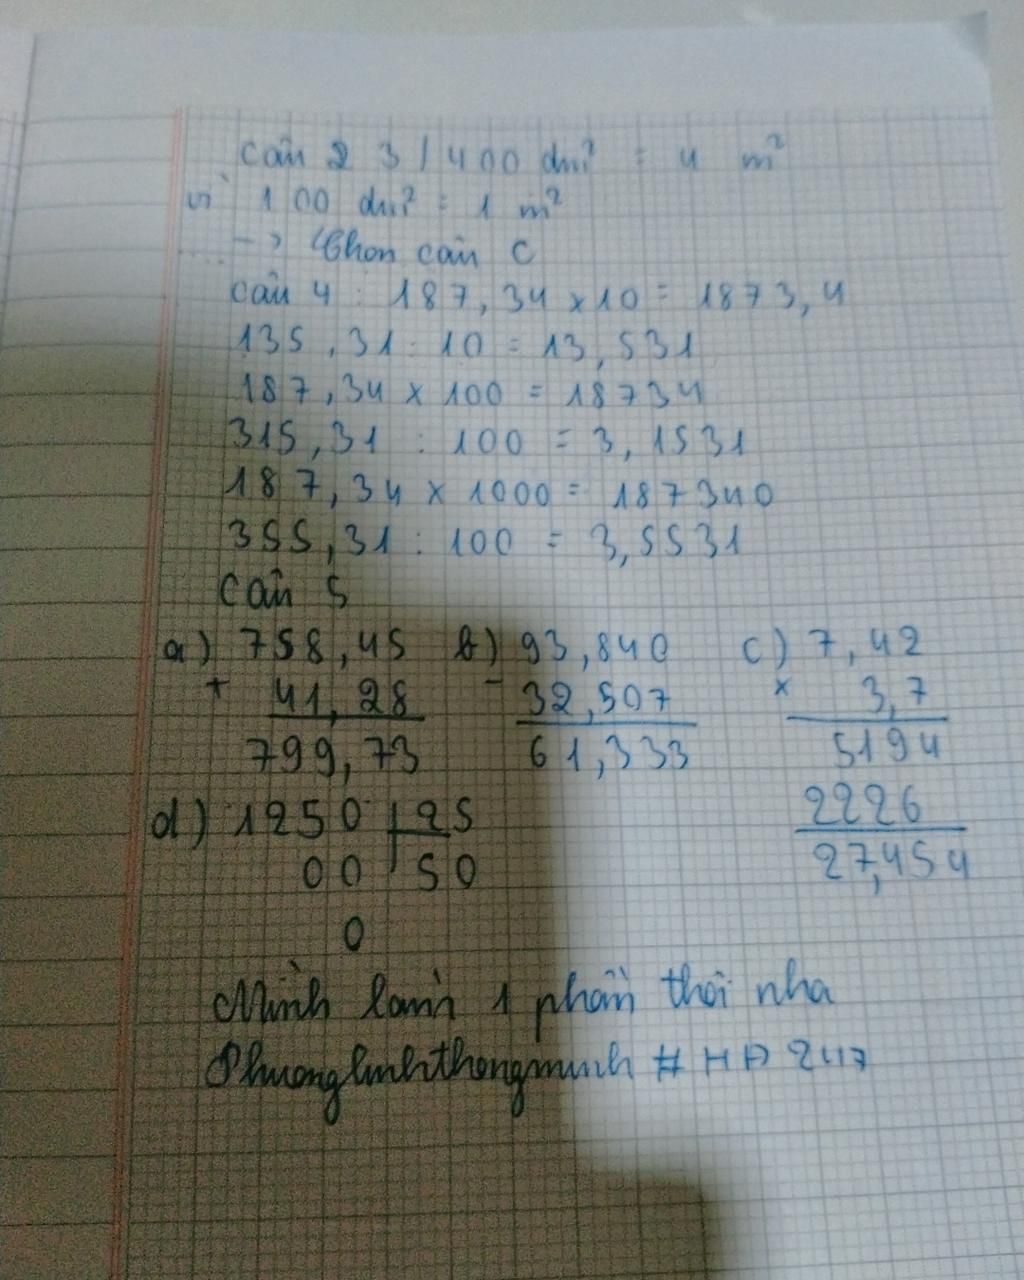 Câu 3 / 400 dm² = 4 m²
vì 100 dm² = 1 m²
-> Chọn câu C
câu 4 : 187,34 x 10 = 1873,4
135,31 : 10 = 13,531
187,34 x 100 = 18734
315,31 : 100 = 3,1531
187,34 x 1000 = 187340
355,31 : 100 = 3,5531
câu 5
a) 758,45 b) 93,840 c) 7,42
+ 41,28 - 32,507 x 3,7
799,73 61,333 5194
d) 1250 25 2226
00 50 27,454
0
Mình làm 1 phần thôi nha
Phuonglinhthongminh # HA 247